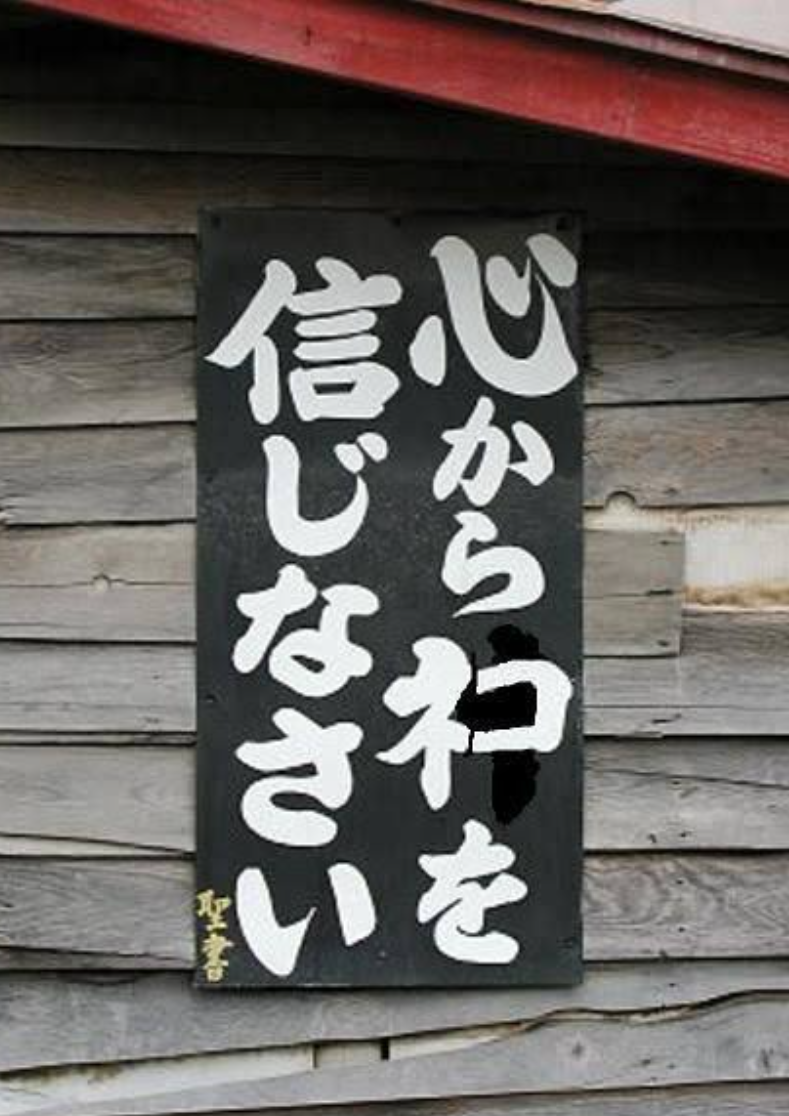 心からネコを
信じなさい
聖書